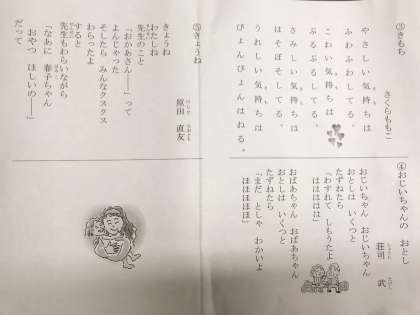 ③きもち
さくらももこ
やさしい気持ちは
ふわふわしてる。
こわい気持ちは
ぶるぶるしてる。
さみしい気持ちは
ほそぼそしてる。
うれしい気持ちは
ぴょんぴょんはねる。
④おじいちゃんの おとし
荘司 武
おじいちゃん おじいちゃん
おとしは いくつと
たずねたら
「わすれて しもうたよ
はははは」
おばあちゃん おばあちゃん
おとしは いくつと
たずねたら
「まだ としゃ わかいよ
ほほほほ」
⑤きょうね
原田 直友
きょうね
わたしね
先生のこと
「おかあさん――」って
よんじゃった
そしたら みんなクスクス
わらったよ
すると
先生もわらいながら
「なあに 春子ちゃん
おやつ ほしいの――」
だって